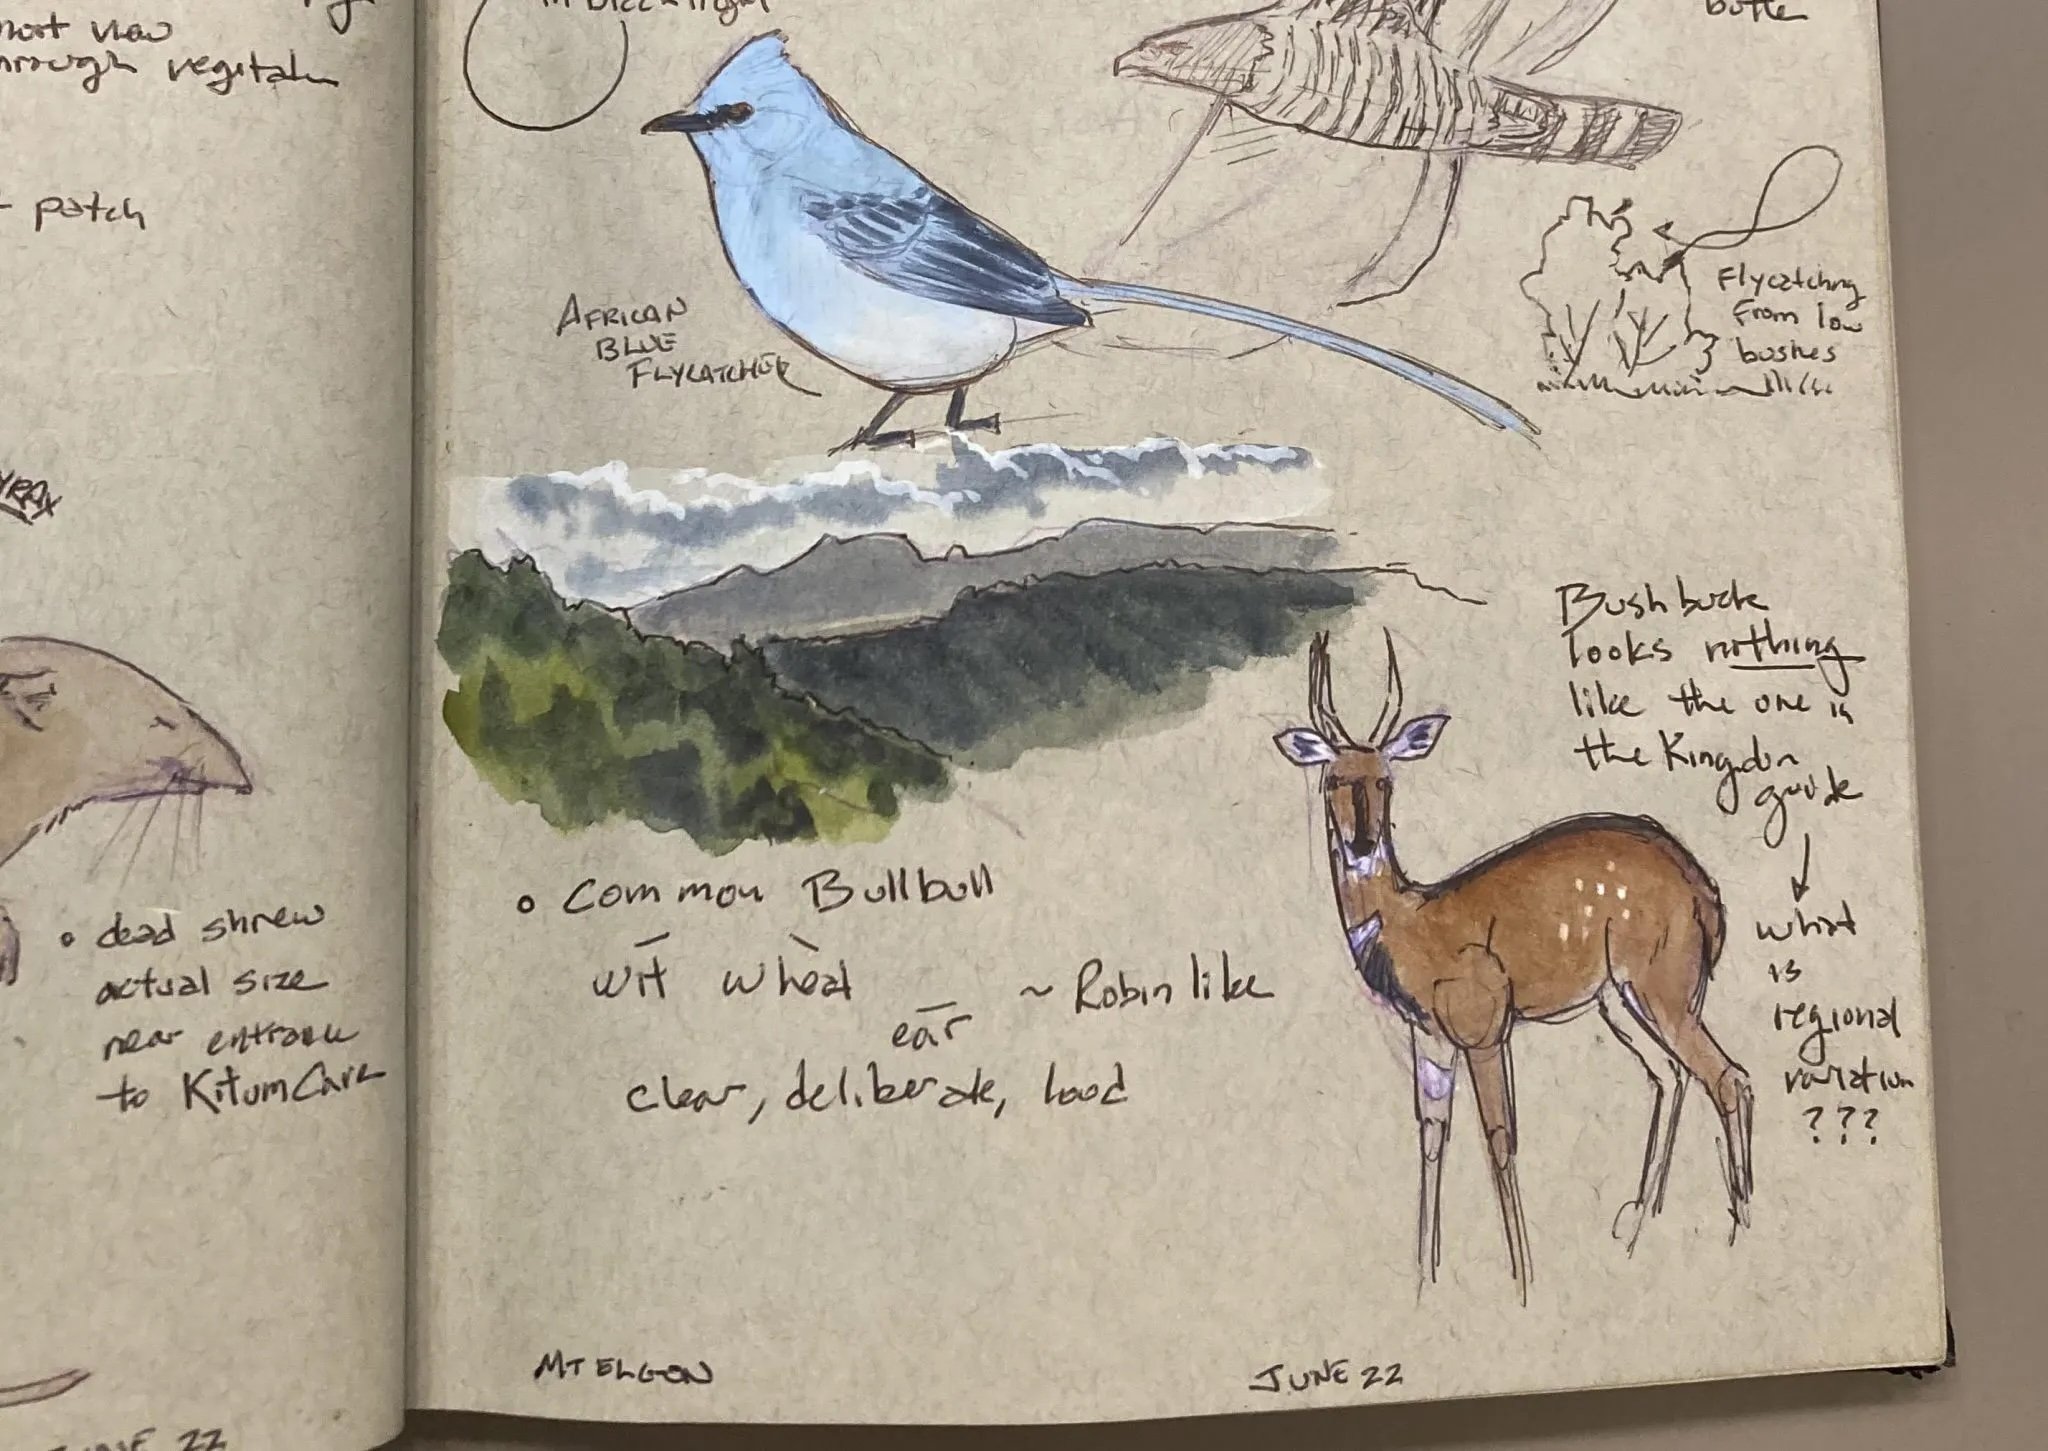 short view
through vegetation
patch
HYRAX
• dead shrew
actual size
near entrance
to Kitum Cave
JUNE 22
in direct light
butte
AFRICAN
BLUE
FLYCATCHER
Flycatching
From low
bushes
Bushbuck
looks nothing
like the one in
the Kingdon
guide
what
is
regional
variation
???
• Common Bullbull
wit wheat
ear
~ Robin like
clear, deliberate, loud
MT ELGON
JUNE 22